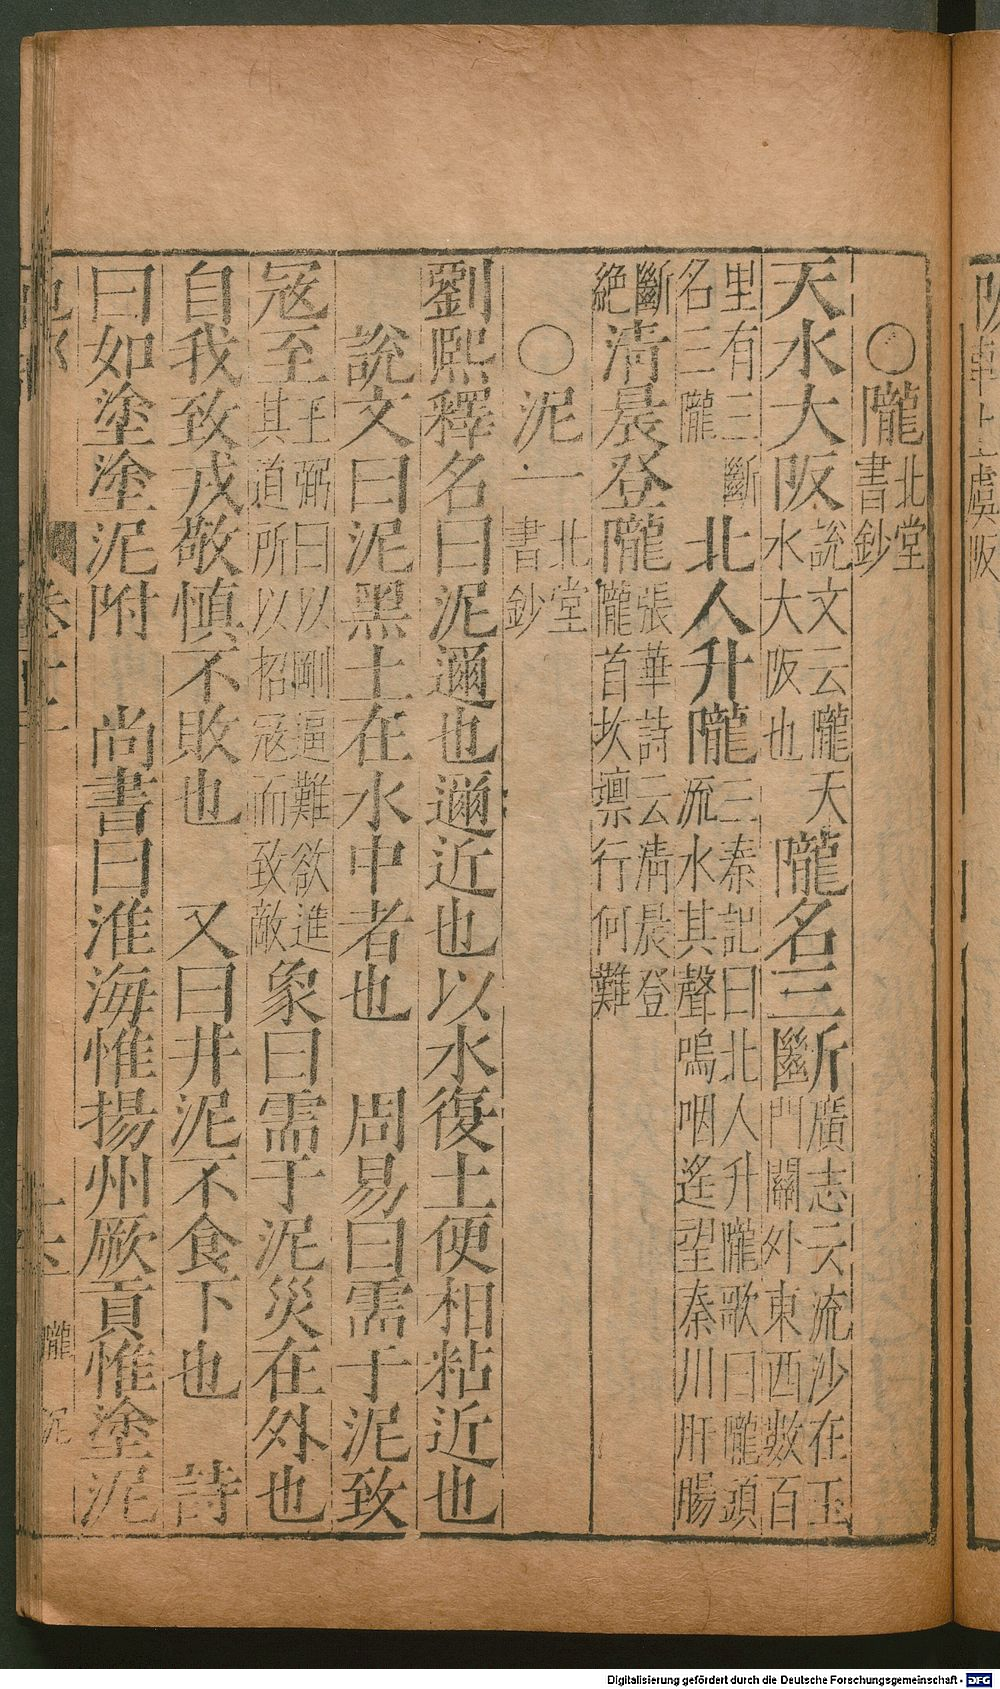 ○隴北堂書鈔
天水大阪說文云隴天水大阪也隴名三斷廣志云流沙在玉門關外東西數百
里有三斷名三隴北人升隴三秦記曰北人升隴歌曰隴頭流水其聲嗚咽遙望秦川肝腸
斷絕清晨登隴張華詩云清晨登隴首坎壈行何難
○泥一北堂書鈔
劉熙釋名曰泥邇也邇近也以水復土便相粘近也
說文曰泥黑土在水中者也 周易曰需于泥致
冦至王弼曰以剛逼難欲進其道所以招冦而致敵象曰需于泥災在外也
自我致戎敬慎不敗也 又曰井泥不食下也 詩
曰如塗塗泥附 尚書曰淮海惟揚州厥貢惟塗泥
隴 泥
Digitalisierung gefördert durch die Deutsche Forschungsgemeinschaft - DFG